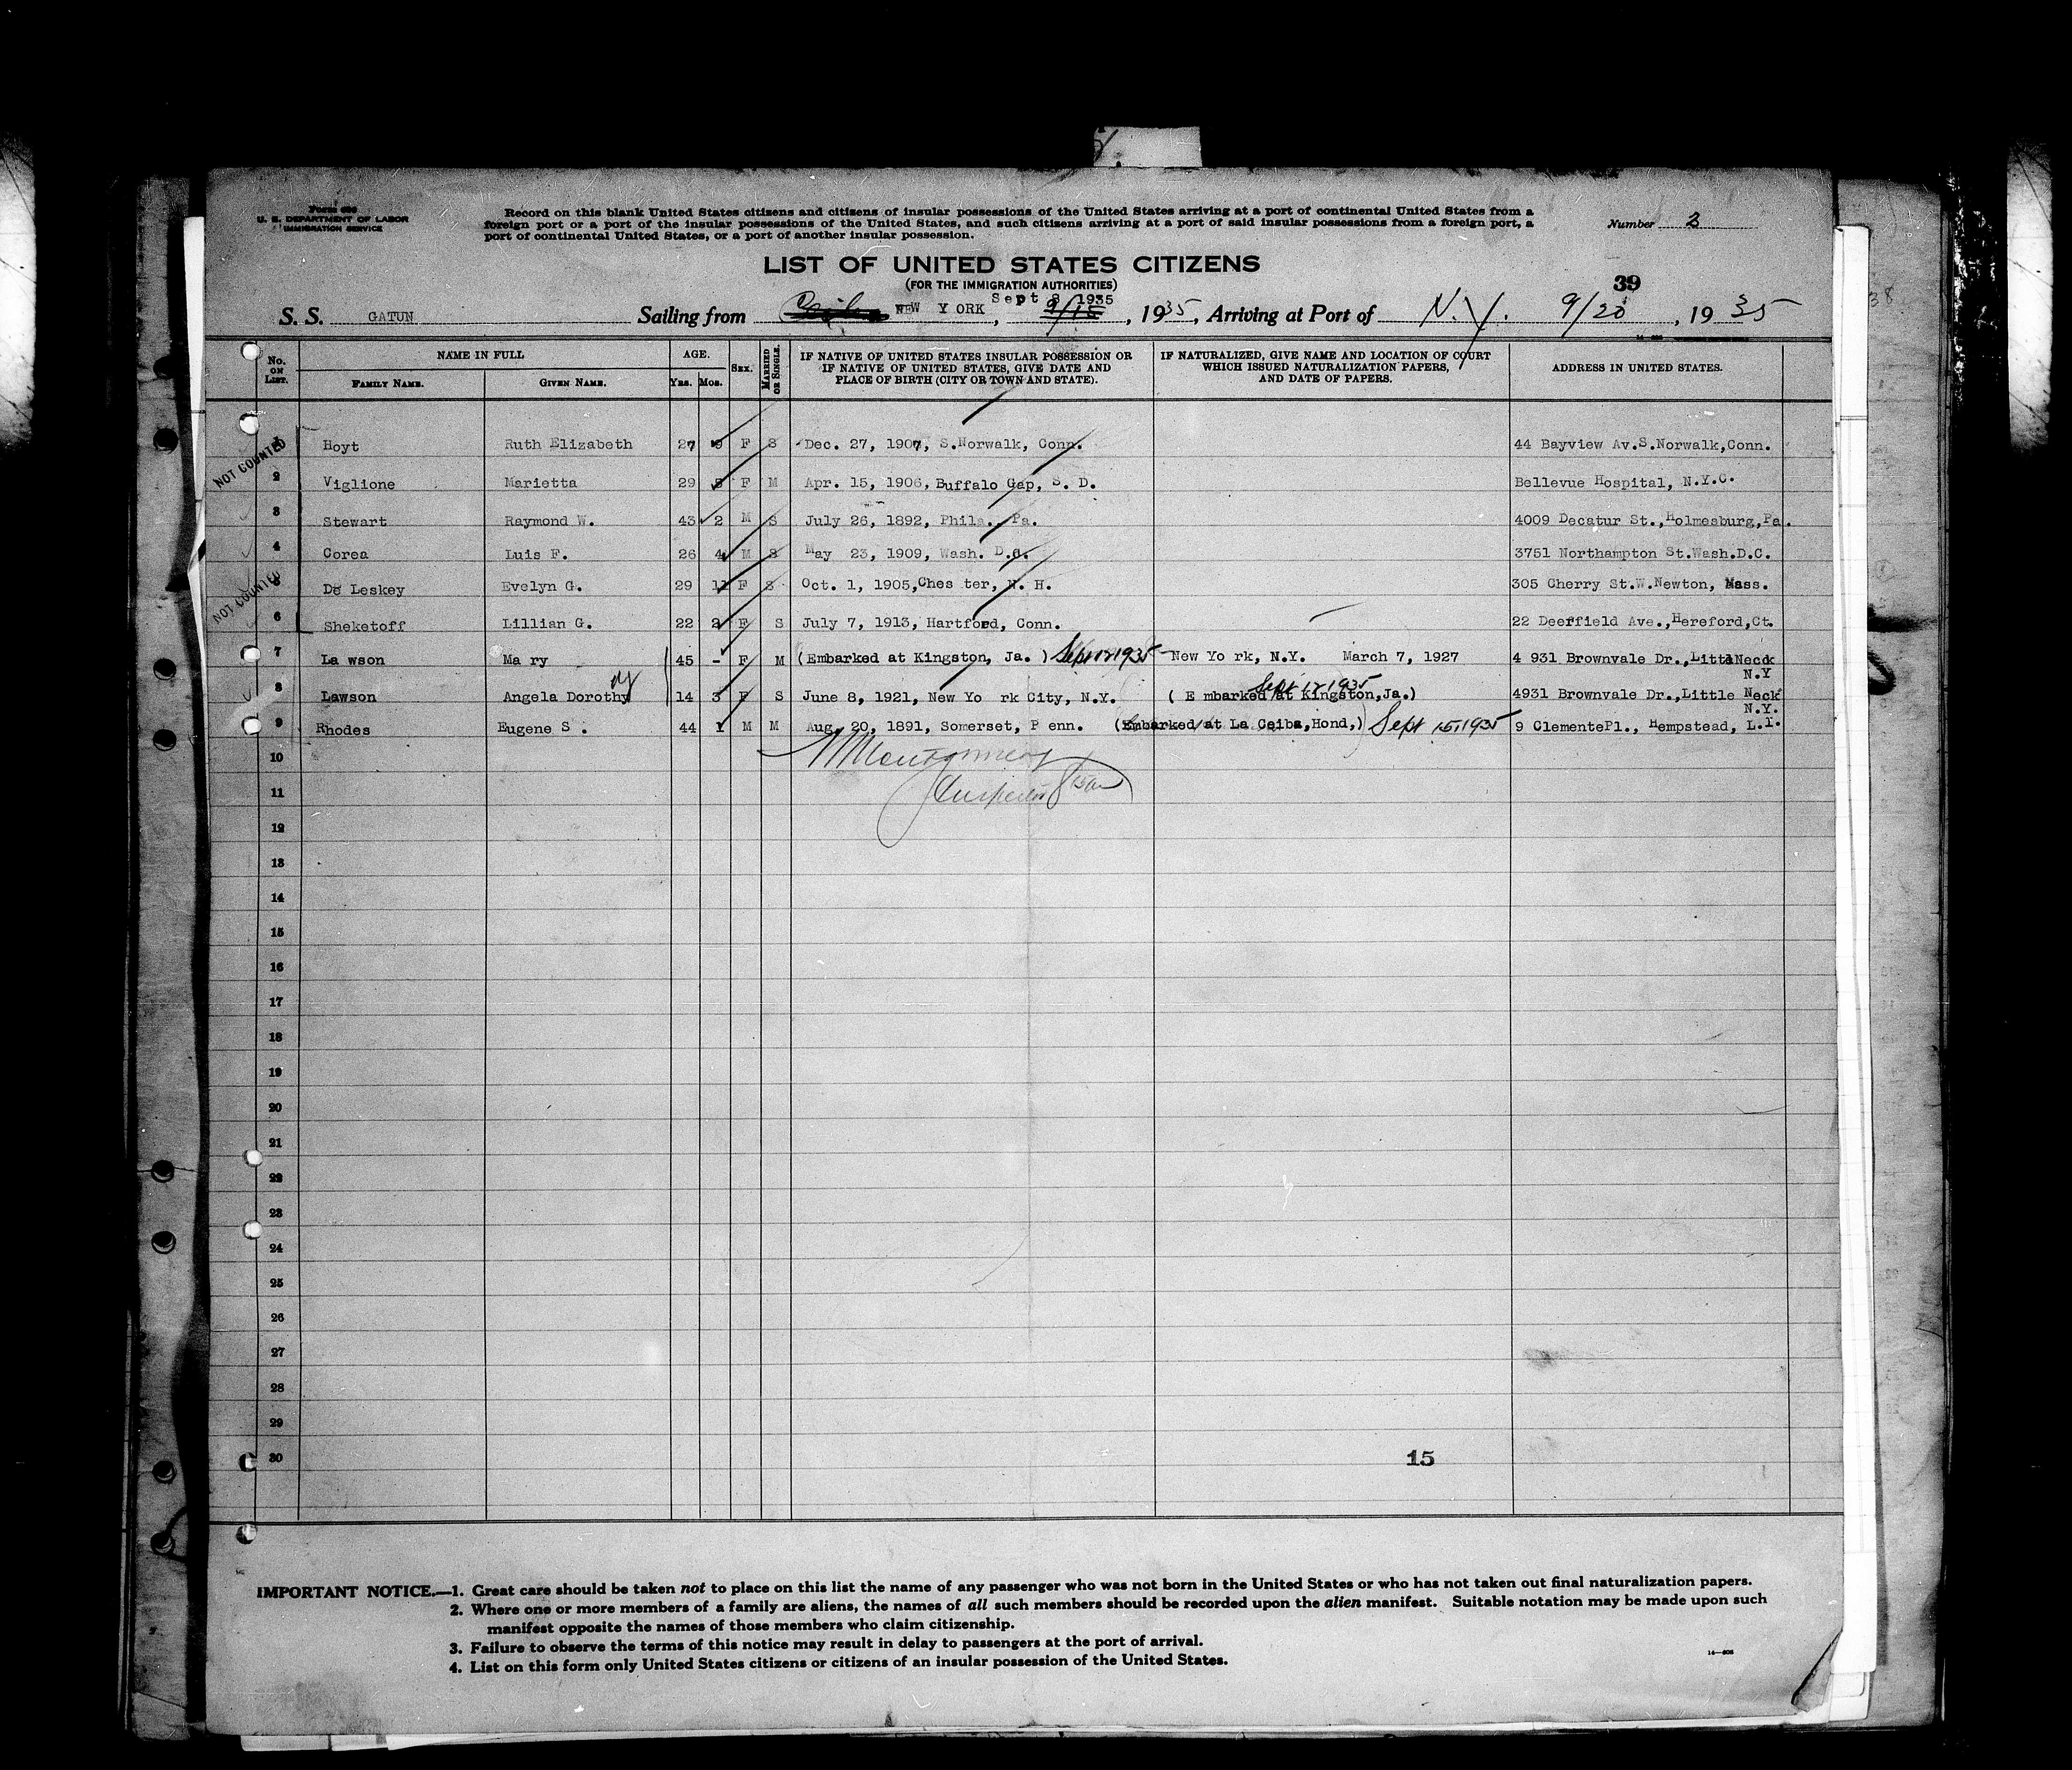 U. S. DEPARTMENT OF LABOR
IMMIGRATION SERVICE
Record on this blank United States citizens and citizens of insular possessions of the United States arriving at a port of continental United States from a
foreign port or a port of the insular possessions of the United States, and such citizens arriving at a port of said insular possessions from a foreign port, a
port of continental United States, or a port of another insular possession.
Number
LIST OF UNITED STATES CITIZENS
(FOR THE IMMIGRATION AUTHORITIES)
39
Sept 8 1935
S. S. GATUN Sailing from NEW Y ORK, 9/15, 1935, Arriving at Port of N.Y. 9/20, 1935
No. ON LIST. NAME IN FULL AGE. SEX. MARRIED OR SINGLE. IF NATIVE OF UNITED STATES INSULAR POSSESSION OR IF NATIVE OF UNITED STATES, GIVE DATE AND PLACE OF BIRTH (CITY OR TOWN AND STATE). IF NATURALIZED, GIVE NAME AND LOCATION OF COURT WHICH ISSUED NATURALIZATION PAPERS, AND DATE OF PAPERS. ADDRESS IN UNITED STATES.
FAMILY NAME. GIVEN NAME. YRS. MOS.
NOT COUNTED
Hoyt Ruth Elizabeth 27 F S Dec. 27, 1907, S.Norwalk, Conn. 44 Bayview Av.S.Norwalk,Conn.
2 Viglione Marietta 29 5 F M Apr. 15, 1906, Buffalo Gap, S. D. Bellevue Hospital, N.Y.C.
3 Stewart Raymond W. 43 2 M S July 26, 1892, Phila. Pa. 4009 Decatur St.,Holmesburg,Pa.
4 Corea Luis F. 26 4 M S May 23, 1909, Wash. D.C. 3751 Northampton St.Wash.D.C.
NOT COUNTED
5 De Leskey Evelyn G. 29 11 F S Oct. 1, 1905,Ches ter, N. H. 305 Cherry St.W.Newton, Mass.
6 Sheketoff Lillian G. 22 2 F S July 7, 1913, Hartford, Conn. 22 Deerfield Ave.,Hereford,Ct.
7 La wson Ma ry 45 - F M (Embarked at Kingston, Ja. ) Sept 12 1935 New Yo rk, N.Y. March 7, 1927 4 931 Brownvale Dr.,Little Neck
N.Y
Sept 12 1935
8 Lawson Angela Dorothy 14 3 F S June 8, 1921, New Yo rk City, N.Y. ( E mbarked at Kingston,Ja.) 4931 Brownvale Dr.,Little Neck
N.Y.
9 Rhodes Eugene S . 44 1 M M Aug. 20, 1891, Somerset, P enn. (Embarked at La Ceiba,Hond,) Sept 15,1935 9 ClementePl., Hempstead, L.I.
10 Montgomery
11 Inspector
12
13
14
15
16
17
18
19
20
21
22
23
24
25
26
27
28
29
30 15
IMPORTANT NOTICE.—1. Great care should be taken not to place on this list the name of any passenger who was not born in the United States or who has not taken out final naturalization papers.
2. Where one or more members of a family are aliens, the names of all such members should be recorded upon the alien manifest. Suitable notation may be made upon such
manifest opposite the names of those members who claim citizenship.
3. Failure to observe the terms of this notice may result in delay to passengers at the port of arrival.
4. List on this form only United States citizens or citizens of an insular possession of the United States.